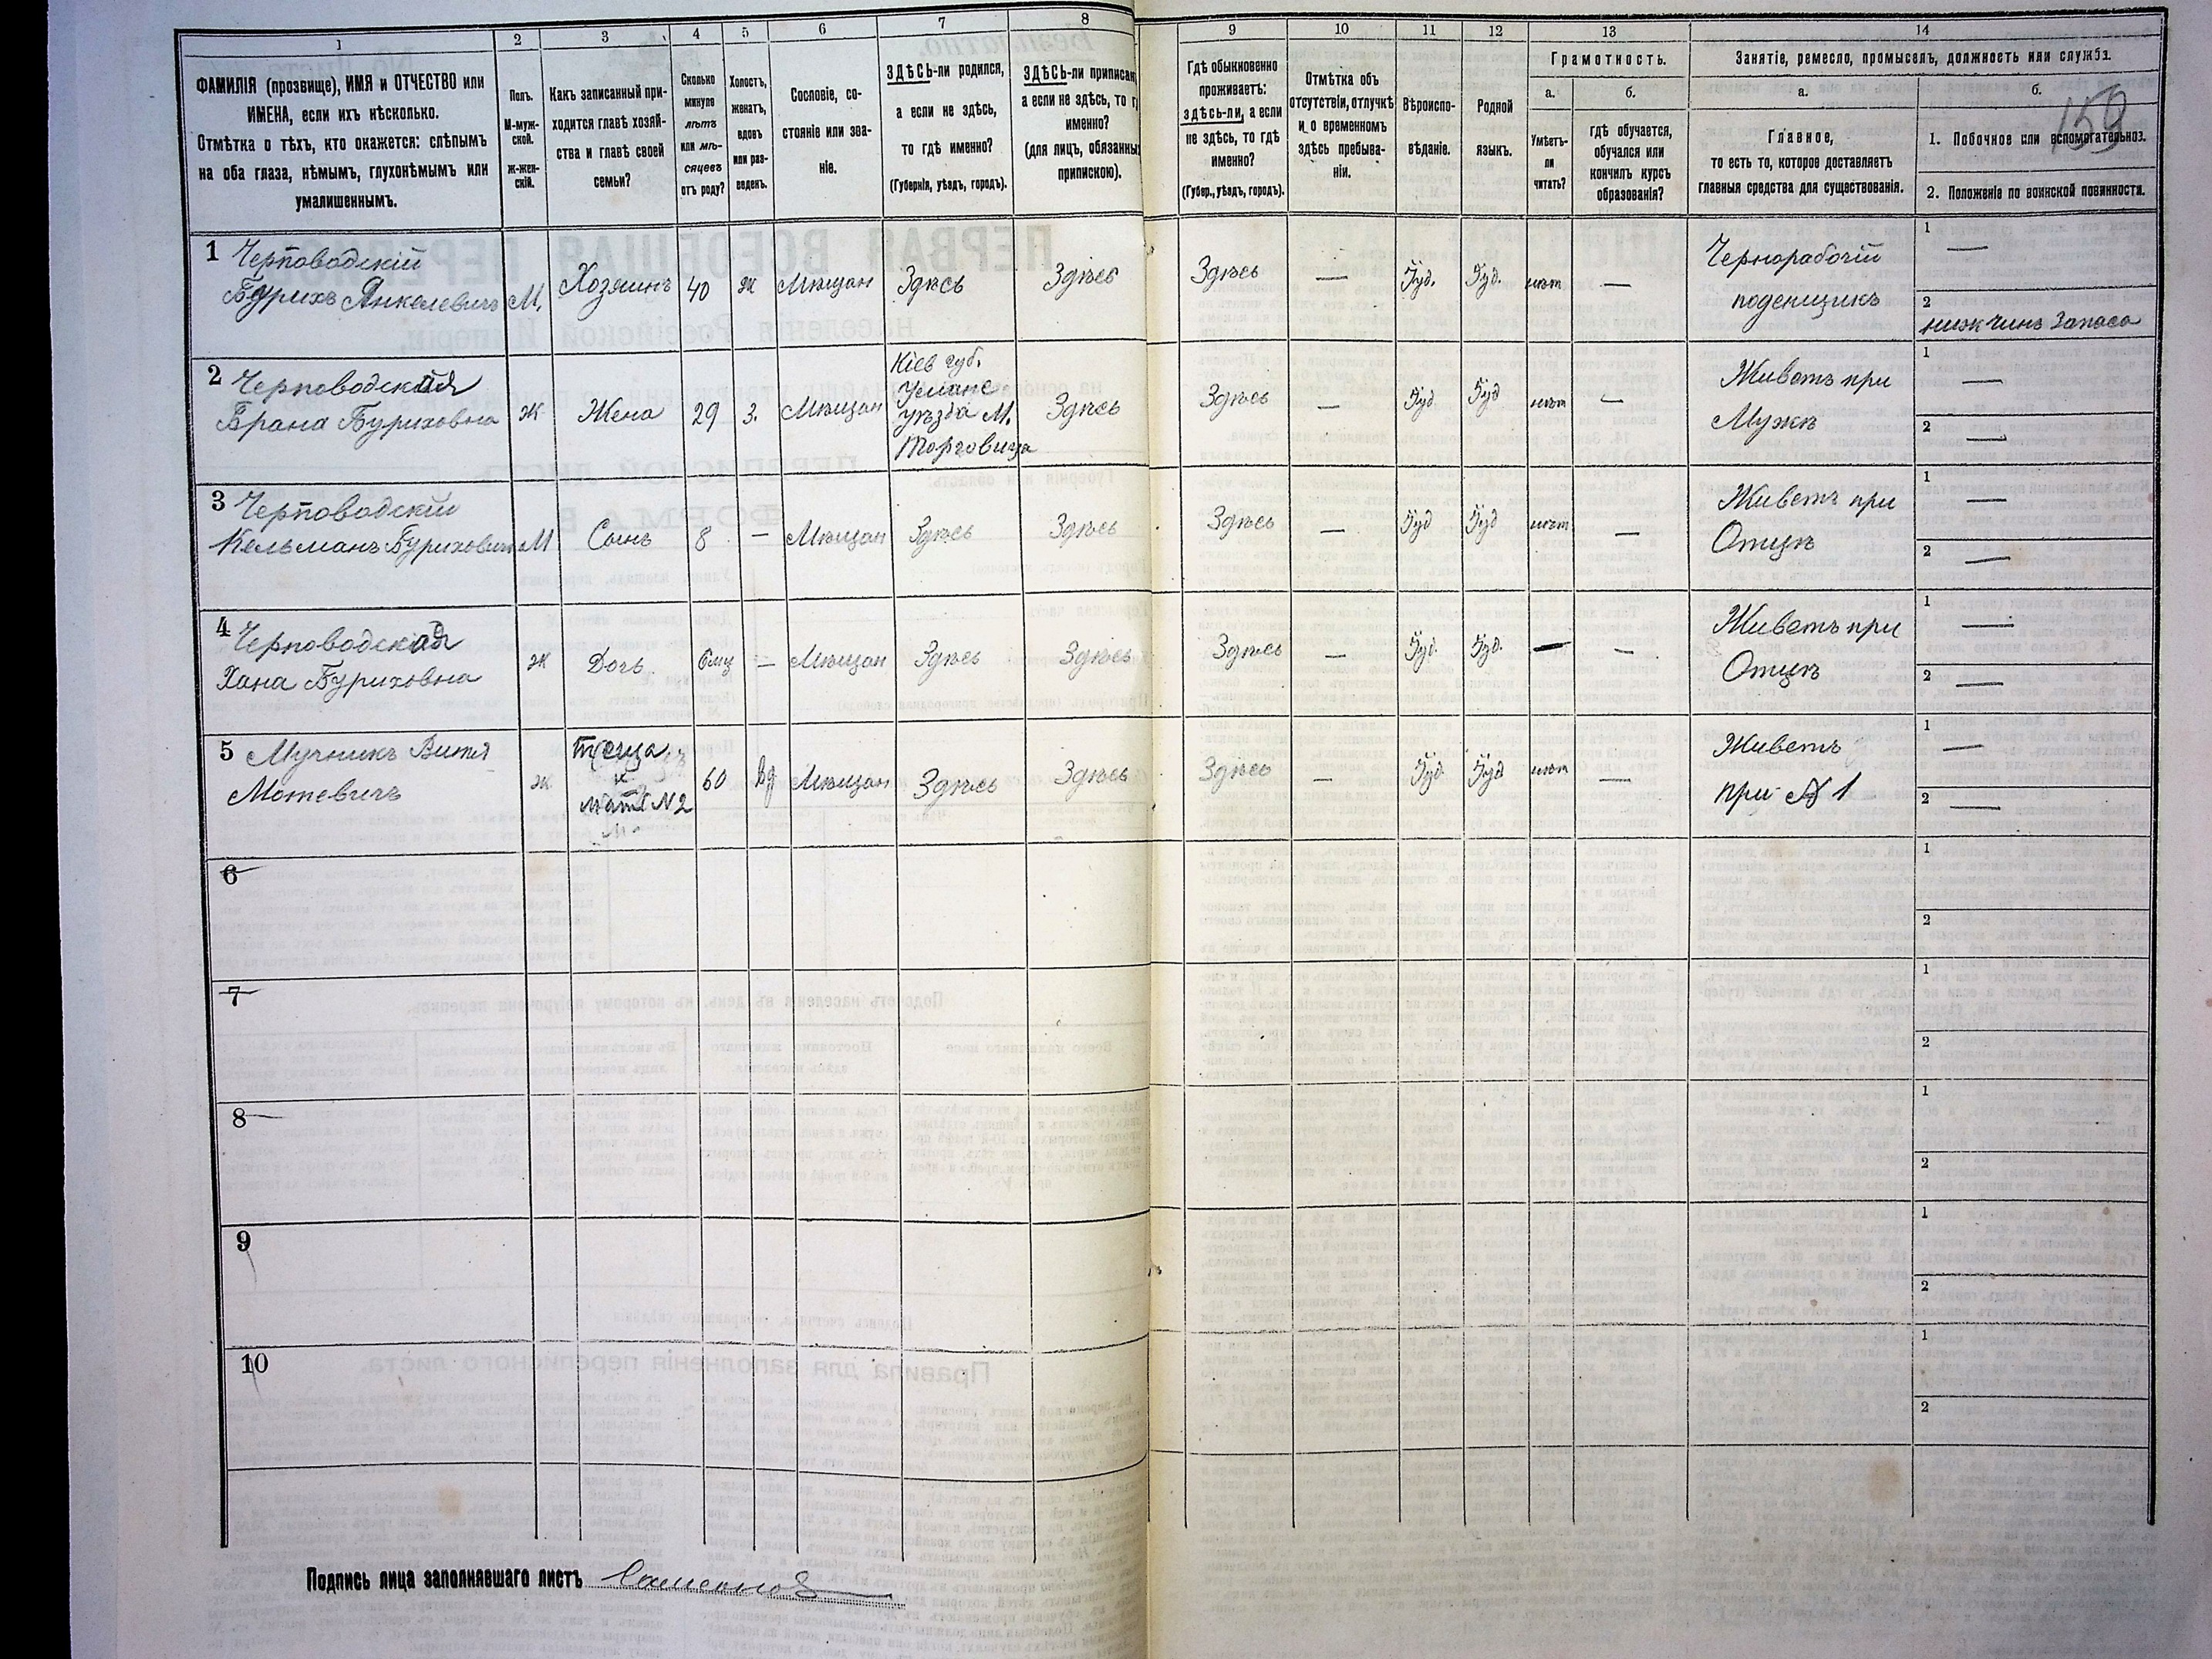 1 2 3 4 5 6 7 8 9 10 11 12 13 14
ФАМИЛІЯ (прозвище), ИМЯ и ОТЧЕСТВО или
ИМЕНА, если ихъ нѣсколько.
Отмѣтка о тѣхъ, кто окажется: слѣпымъ
на оба глаза, нѣмымъ, глухонѣмымъ или
умалишеннымъ.
Полъ.
М-муж-
ской.
ж-жен-
скій.
Какъ записанный при-
ходится главѣ хозяй-
ства и главѣ своей
семьи?
Сколько
минуло
лѣтъ
или мѣ-
сяцевъ
отъ роду?
Холостъ,
женатъ,
вдовъ
или раз-
веденъ.
Сословіе, со-
стояніе или зва-
ніе.
ЗДѢСЬ-ли родился,
а если не здѣсь,
то гдѣ именно?
(Губернія, уѣздъ, городъ).
ЗДѢСЬ-ли приписан
а если не здѣсь, то г
именно?
(для лицъ, обязанны
припискою).
Гдѣ обыкновенно
проживаетъ:
здѣсь-ли, а если
не здѣсь, то гдѣ
именно?
(Губер., уѣздъ, городъ).
Отмѣтка объ
отсутствіи, отлучкѣ
и о временномъ
здѣсь пребыва-
ніи.
Вѣроиспо-
вѣданіе.
Родной
языкъ.
Грамотность.
а.
Умѣетъ-
ли
читать?
б.
гдѣ обучается,
обучался или
кончилъ курсъ
образованія?
Занятіе, ремесло, промыселъ, должность или служба.
а.
Главное,
то есть то, которое доставляетъ
главныя средства для существованія.
б.
159
1. Побочное или вспомогательное.
2. Положеніе по воинской повинности.
1 Черповодскій
Бурихъ Янкелевичъ М. Хозяинъ 40 Ж Мѣщан Здѣсь Здѣсь Здѣсь — Іуд. Іуд. нѣт —
Чернорабочій
поденщикъ
1 —
2 нижчинъ Запаса
2 Черповодская
Брана Буриховна Ж Жена 29 З. Мѣщан
Кіев губ.
Уманс
уѣзда М.
Торговица
Здѣсь Здѣсь — Іуд Іуд нѣт —
Живетъ при
Мужѣ
1 —
2 —
3 Черповодскій
Кельманъ Бурихович М Сынъ 8 — Мѣщан Здѣсь Здѣсь Здѣсь — Іуд Іуд нѣт —
Живетъ при
Отцѣ
1 —
2 —
4 Черповодская
Хана Буриховна Ж Дочь. 6мц — Мѣщан Здѣсь Здѣсь Здѣсь — Іуд. Іуд. — —
Живетъ при
Отцѣ
1 —
2 —
5 Мучникъ Витя
Мотевичъ Ж
теща
и
мат N2
60 Вд Мѣщан Здѣсь Здѣсь Здѣсь — Іуд Іуд нѣт —
Живетъ
при № 1
1 —
2 —
6
1
2
7
1
2
8
1
2
9
1
2
10
1
2
Подпись лица заполнявшаго листъ